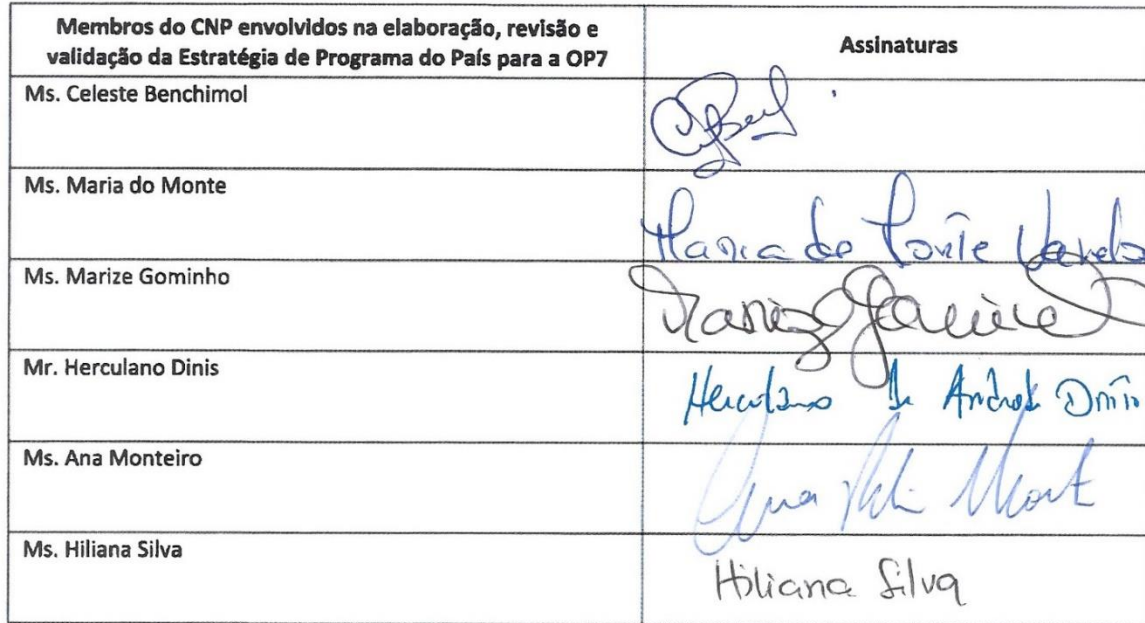 Membros do CNP envolvidos na elaboração, revisão e
validação da Estratégia de Programa do País para a OP7
Assinaturas
Ms. Celeste Benchimol
Ms. Maria do Monte
Maria do Monte
Ms. Marize Gominho
Marize
Mr. Herculano Dinis
Herculano de Andrade Dinis
Ms. Ana Monteiro
Ana
Ms. Hiliana Silva
Hiliana Silva